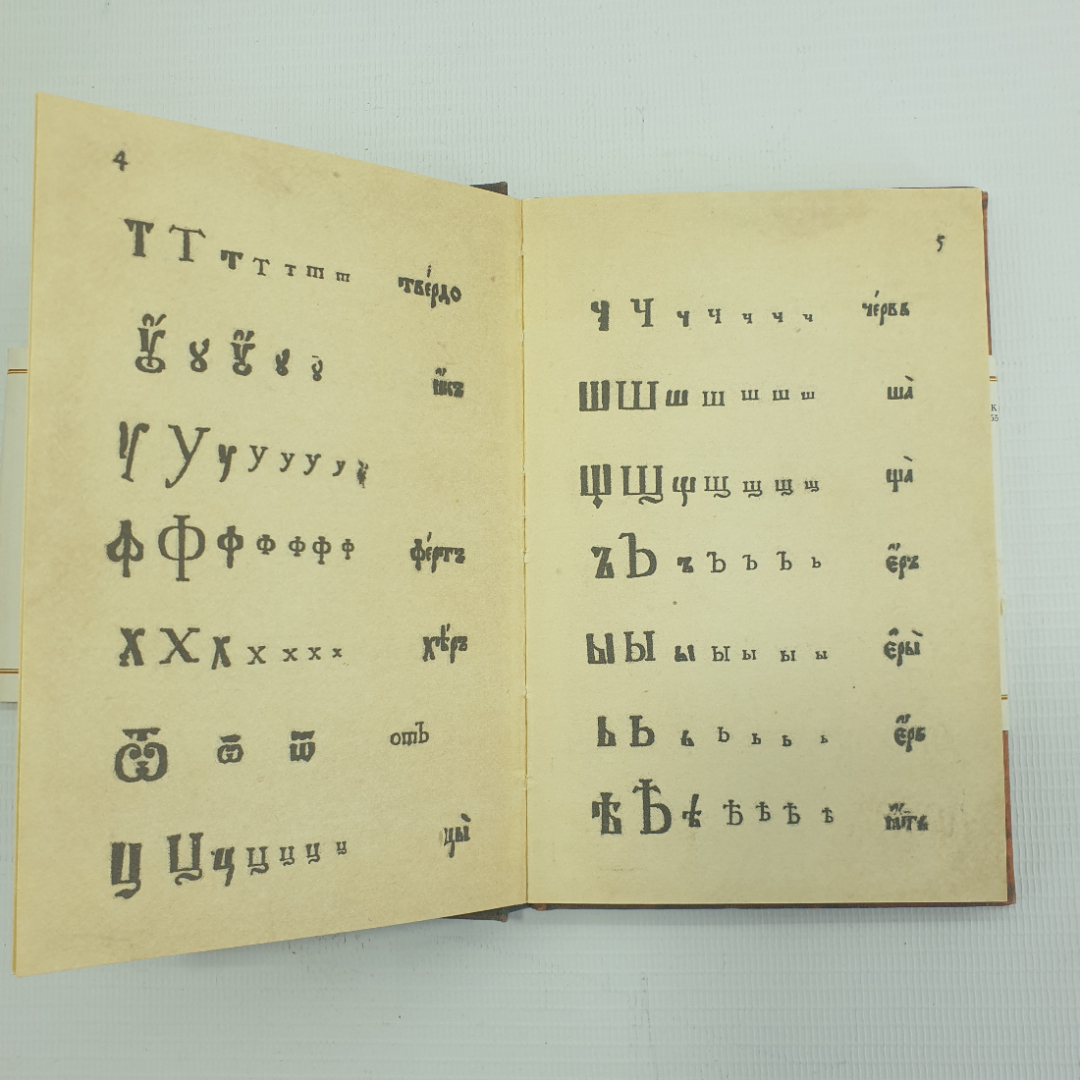 4
Т Т т т т т т тве́рдо
Ꙋ ꙋ Ꙋ ꙋ ꙋ и҆́къ
У У у у у у у у
Ф Ф ф ф ф ф ф фе́ртъ
Х Х х х х х х хѣ́ръ
Ѿ ѿ ѿ отЪ
Ц Ц ц ц ц ц ц цы̀
5
Ч Ч ч ч ч ч ч че́рвь
Ш Ш ш ш ш ш ш ша̀
Щ Щ щ щ щ щ щ ща̀
Ъ Ъ ъ Ъ Ъ Ъ ъ є҆́ръ
Ы Ы ы ы ы ы ы є҆ры̀
Ь Ь ь ь ь ь ь є҆́рь
Ѣ Ѣ ѣ ѣ ѣ ѣ ѣ ꙗ҆́ть